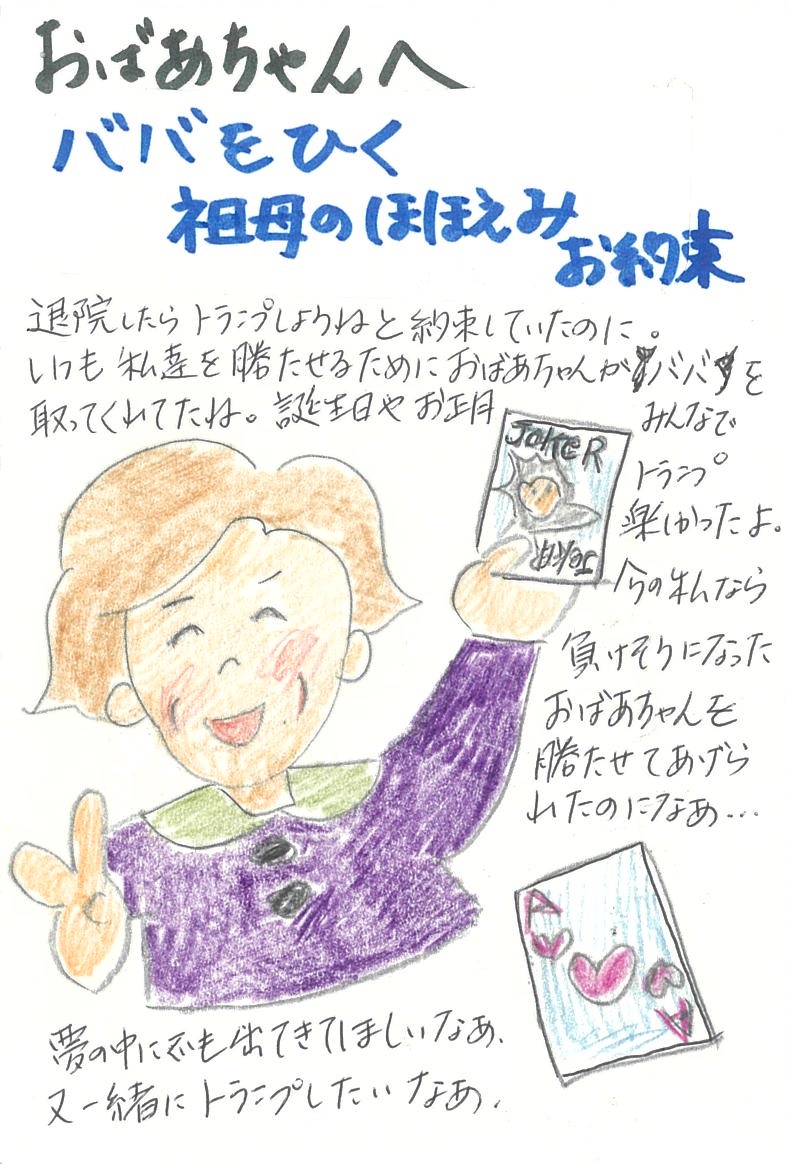 おばあちゃんへ
ババをひく
祖母のほほえみ
お約束
退院したらトランプしようねと約束していたのに。
いつも私達を勝たせるためにおばあちゃんがババを
取ってくれてたね。誕生日やお正月
みんなで
トランプ
楽しかったよ。
今の私なら
負けそうになった
おばあちゃんを
勝たせてあげら
れたのになぁ…
JOKER
JOKER
A
A
夢の中にでも出てきてほしいなぁ、
又一緒にトランプしたいなぁ、